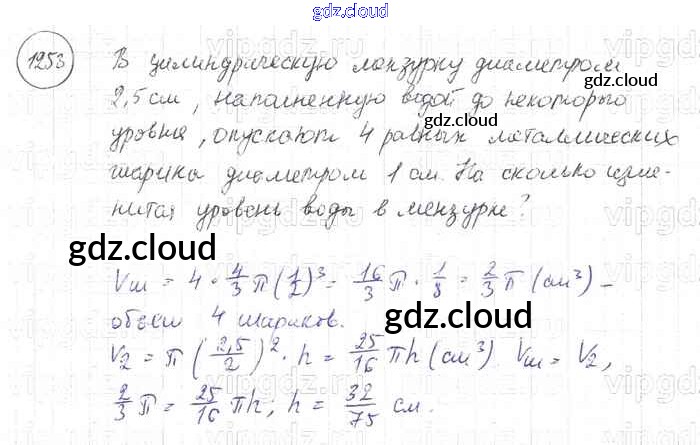 gdz.cloud
1253 В цилиндрическую мензурку диаметром
gdz.cloud
2,5 см, наполненную водой до некоторого
gdz.cloud
уровня, опускают 4 равных металлических
шарика диаметром 1 см. На сколько изме-
нится уровень воды в мензурке?
gdz.cloud
Vш = 4 · 4/3 π (1/2)³ = 16/3 π · 1/8 = 2/3 π (см³) –
объем 4 шариков.
gdz.cloud
V₂ = π (2,5/2)² · h = 25/16 πh (см³) Vш = V₂,
2/3 π = 25/16 πh, h = 32/75 см.